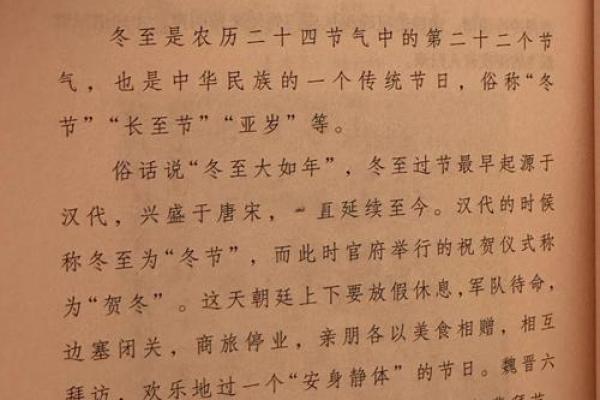 冬至是农历二十四节气中的第二十二个节
气，也是中华民族的一个传统节日，俗称“冬
节”“长至节”“亚岁”等。
俗话说“冬至大如年”，冬至过节最早起源于
汉代，兴盛于唐宋，一直延续至今。汉代的时候
称冬至为“冬节”，而此时官府举行的祝贺仪式称
为“贺冬”。这天朝廷上下要放假休息，军队待命，
边塞闭关，商旅停业，亲朋各以美食相赠，相互
拜访，欢乐地过一个“安身静体”的节日。魏晋六